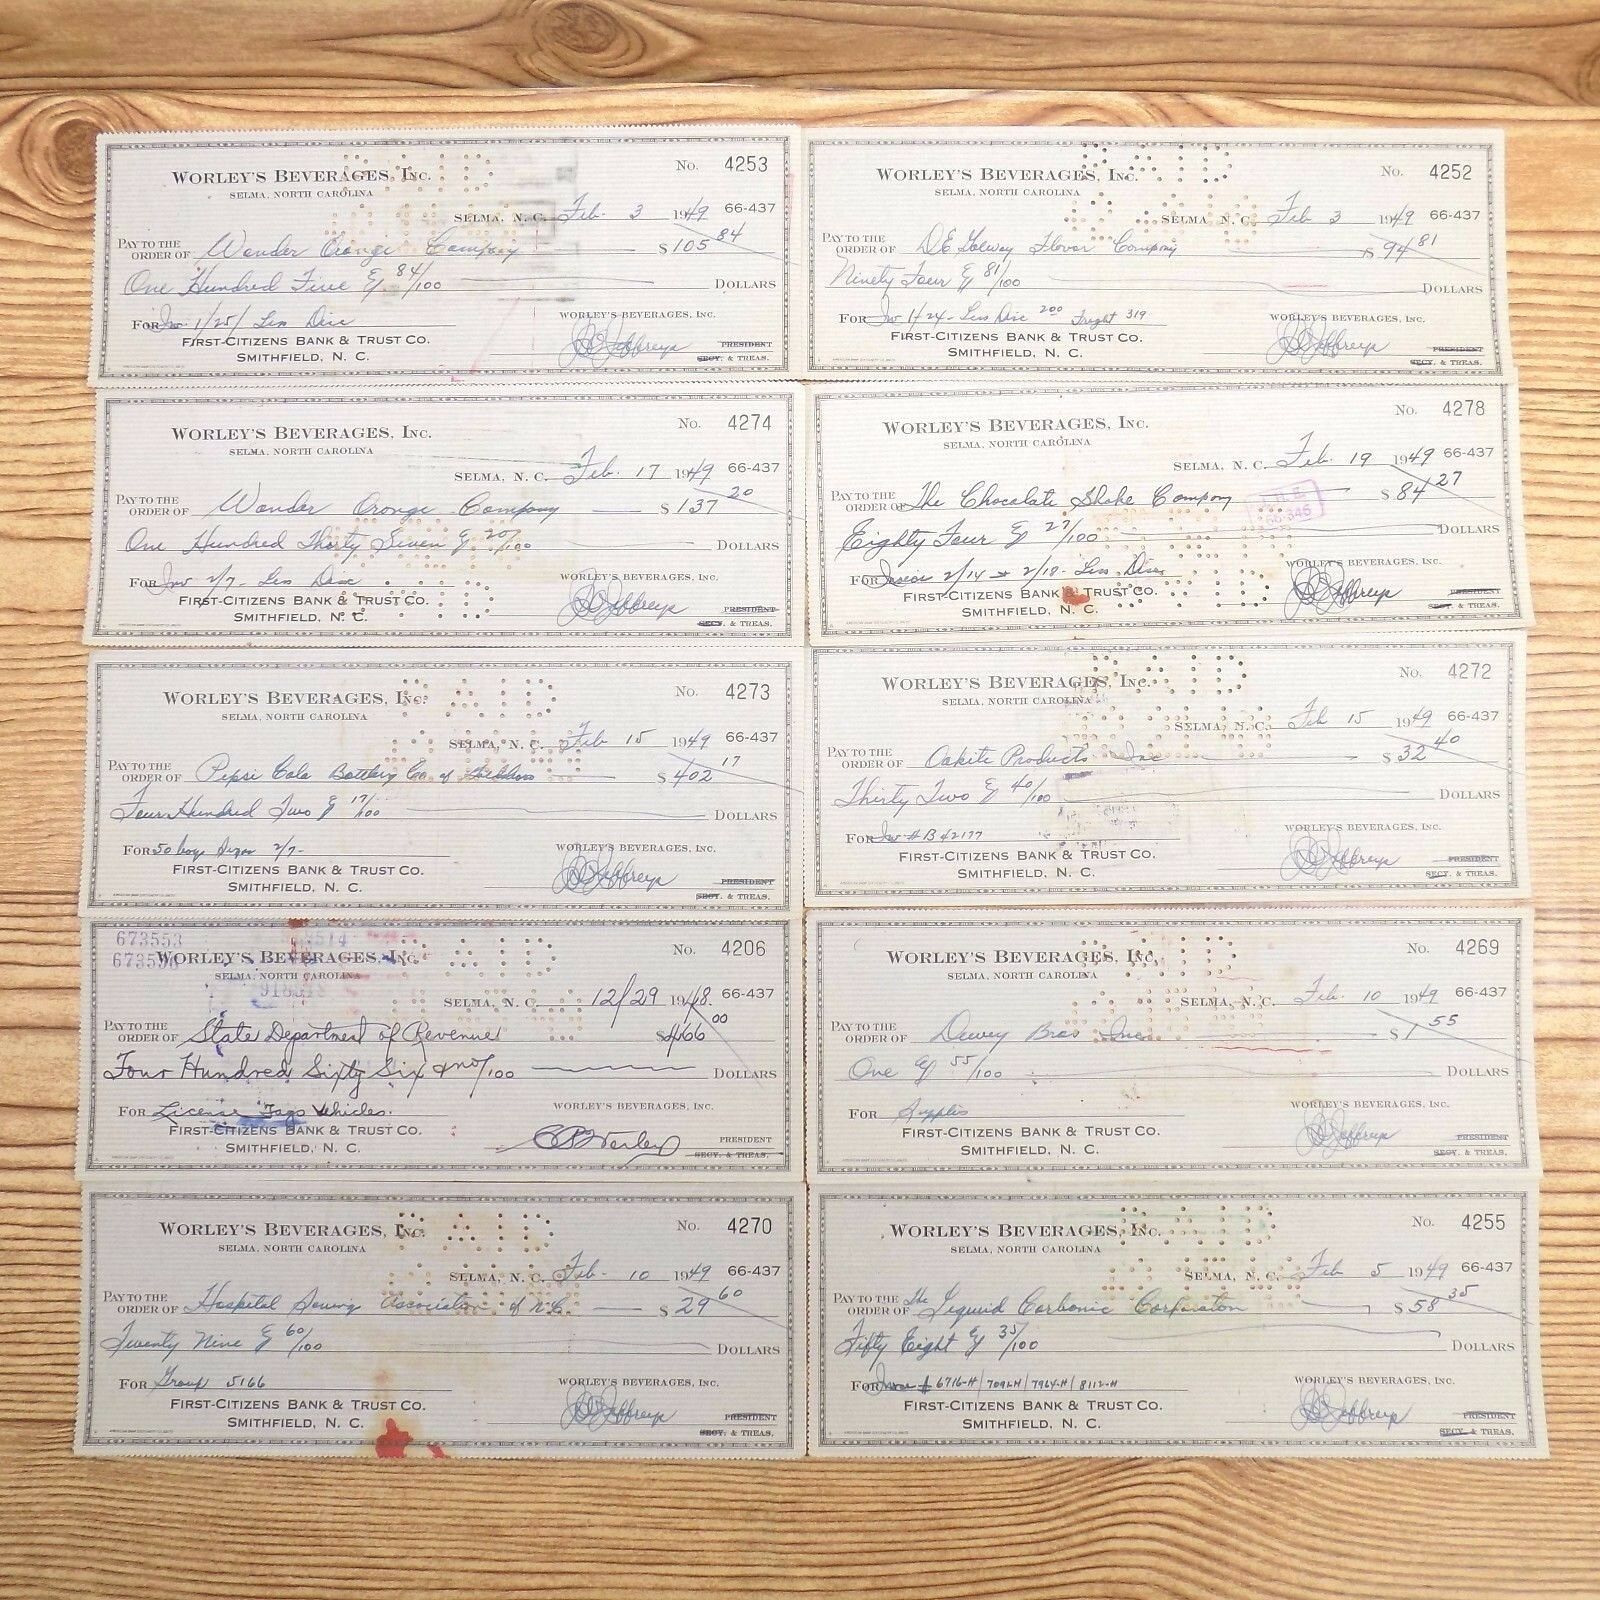 WORLEY'S BEVERAGES, INC.
SELMA, NORTH CAROLINA
No. 4253
SELMA, N. C. Feb. 3 1949 66-437
PAY TO THE ORDER OF Wonder Orange Company $ 105 84
One Hundred Five & 84/100 DOLLARS
FOR Inv 1/25/ Less Disc
WORLEY'S BEVERAGES, INC.
FIRST-CITIZENS BANK & TRUST CO.
SMITHFIELD, N. C.
PRESIDENT
SECY. & TREAS.
PAID
WORLEY'S BEVERAGES, INC.
SELMA, NORTH CAROLINA
No. 4252
SELMA, N. C. Feb 3 1949 66-437
PAY TO THE ORDER OF Flavor Company $ 94 81
Ninety Four & 81/100 DOLLARS
FOR Inv 1/24 - Less Disc 200 Freight 319
WORLEY'S BEVERAGES, INC.
FIRST-CITIZENS BANK & TRUST CO.
SMITHFIELD, N. C.
PRESIDENT
SECY. & TREAS.
PAID
WORLEY'S BEVERAGES, INC.
SELMA, NORTH CAROLINA
No. 4274
SELMA, N. C. Feb. 17 1949 66-437
PAY TO THE ORDER OF Wonder Orange Company $ 137 20
One Hundred Thirty Seven & 20/100 DOLLARS
FOR Inv 2/7 - Less Disc
WORLEY'S BEVERAGES, INC.
FIRST-CITIZENS BANK & TRUST CO.
SMITHFIELD, N. C.
PRESIDENT
SECY. & TREAS.
WORLEY'S BEVERAGES, INC.
SELMA, NORTH CAROLINA
No. 4278
SELMA, N. C. Feb. 19 1949 66-437
PAY TO THE ORDER OF The Chocolate Shake Company $ 84 27
Eighty Four & 27/100 DOLLARS
FOR 2/14 + 2/18 - Less Disc
WORLEY'S BEVERAGES, INC.
FIRST-CITIZENS BANK & TRUST CO.
SMITHFIELD, N. C.
PRESIDENT
SECY. & TREAS.
WORLEY'S BEVERAGES, INC.
SELMA, NORTH CAROLINA
No. 4273
SELMA, N. C. Feb 15 1949 66-437
PAY TO THE ORDER OF Pepsi Cola Bottling Co of $ 402 17
Four Hundred Two & 17/100 DOLLARS
FOR 50 bags Sugar 2/7-
WORLEY'S BEVERAGES, INC.
FIRST-CITIZENS BANK & TRUST CO.
SMITHFIELD, N. C.
PRESIDENT
SECY. & TREAS.
PAID
WORLEY'S BEVERAGES, INC.
SELMA, NORTH CAROLINA
No. 4272
SELMA, N. C. Feb 15 1949 66-437
PAY TO THE ORDER OF Oakite Products Inc $ 32 40
Thirty Two & 40/100 DOLLARS
FOR Inv # B42177
WORLEY'S BEVERAGES, INC.
FIRST-CITIZENS BANK & TRUST CO.
SMITHFIELD, N. C.
PRESIDENT
SECY. & TREAS.
PAID
673553
WORLEY'S BEVERAGES, INC.
SELMA, NORTH CAROLINA
No. 4206
SELMA, N. C. 12/29 1948. 66-437
PAY TO THE ORDER OF State Department of Revenue $466 00
Four Hundred Sixty Six & no/100 DOLLARS
FOR License Tags Vehicles.
WORLEY'S BEVERAGES, INC.
FIRST-CITIZENS BANK & TRUST CO.
SMITHFIELD, N. C.
PRESIDENT
SECY. & TREAS.
PAID
WORLEY'S BEVERAGES, INC.
SELMA, NORTH CAROLINA
No. 4269
SELMA, N. C. Feb. 10 1949 66-437
PAY TO THE ORDER OF Dewey Bros Inc. $ 1 55
One & 55/100 DOLLARS
FOR Supplies
WORLEY'S BEVERAGES, INC.
FIRST-CITIZENS BANK & TRUST CO.
SMITHFIELD, N. C.
PRESIDENT
SECY. & TREAS.
PAID
WORLEY'S BEVERAGES, INC.
SELMA, NORTH CAROLINA
No. 4270
SELMA, N. C. Feb. 10 1949 66-437
PAY TO THE ORDER OF Hospital Saving Association of N.C. $ 29 60
Twenty Nine & 60/100 DOLLARS
FOR Group 5166
WORLEY'S BEVERAGES, INC.
FIRST-CITIZENS BANK & TRUST CO.
SMITHFIELD, N. C.
PRESIDENT
SECY. & TREAS.
PAID
WORLEY'S BEVERAGES, INC.
SELMA, NORTH CAROLINA
No. 4255
SELMA, N. C. Feb 5 1949 66-437
PAY TO THE ORDER OF The Liquid Carbonic Corporation $ 58 35
Fifty Eight & 35/100 DOLLARS
FOR # 6716-H / 7092-H / 7964-H / 8112-H
WORLEY'S BEVERAGES, INC.
FIRST-CITIZENS BANK & TRUST CO.
SMITHFIELD, N. C.
PRESIDENT
SECY. & TREAS.
PAID